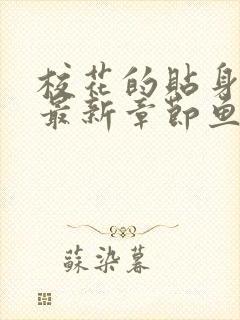 校花的貼身
最新章節魚
蘇染暮